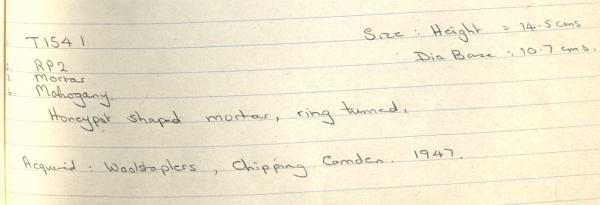 T1541
Size : Height = 14.5 cms
Dia Base : 10.7 cms.
RP2
Mortar
Mahogany.
Honeypot shaped mortar, ring turned.
Acquired : Woolstaplers, Chipping Camden. 1947.